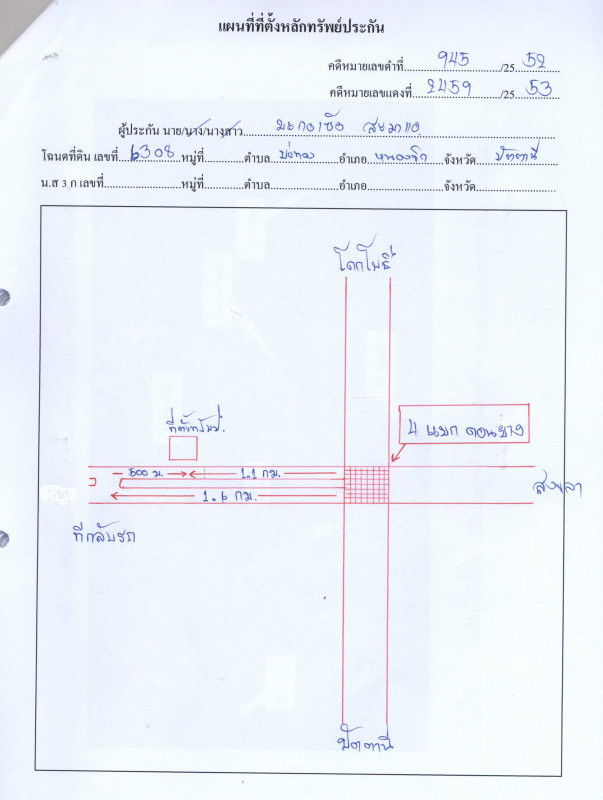 แผนที่ที่ตั้งหลักทรัพย์ประกัน
คดีหมายเลขดำที่ 945 /25 52
คดีหมายเลขแดงที่ 2459 /25 53
ผู้ประกัน นาย/นาง/นางสาว มะกอเซ็ง สะมาแอ
โฉนดที่ดิน เลขที่ 6308 หมู่ที่ ตำบล บ่อทอง อำเภอ หนองจิก จังหวัด ปัตตานี
น.ส 3 ก เลขที่ หมู่ที่ ตำบล อำเภอ จังหวัด
โคกโพธิ์
4 แยก ดอนยาง
ที่ตั้งทรัพย์.
500 ม. 1.1 กม.
1.6 กม.
สงขลา
ที่กลับรถ
ปัตตานี